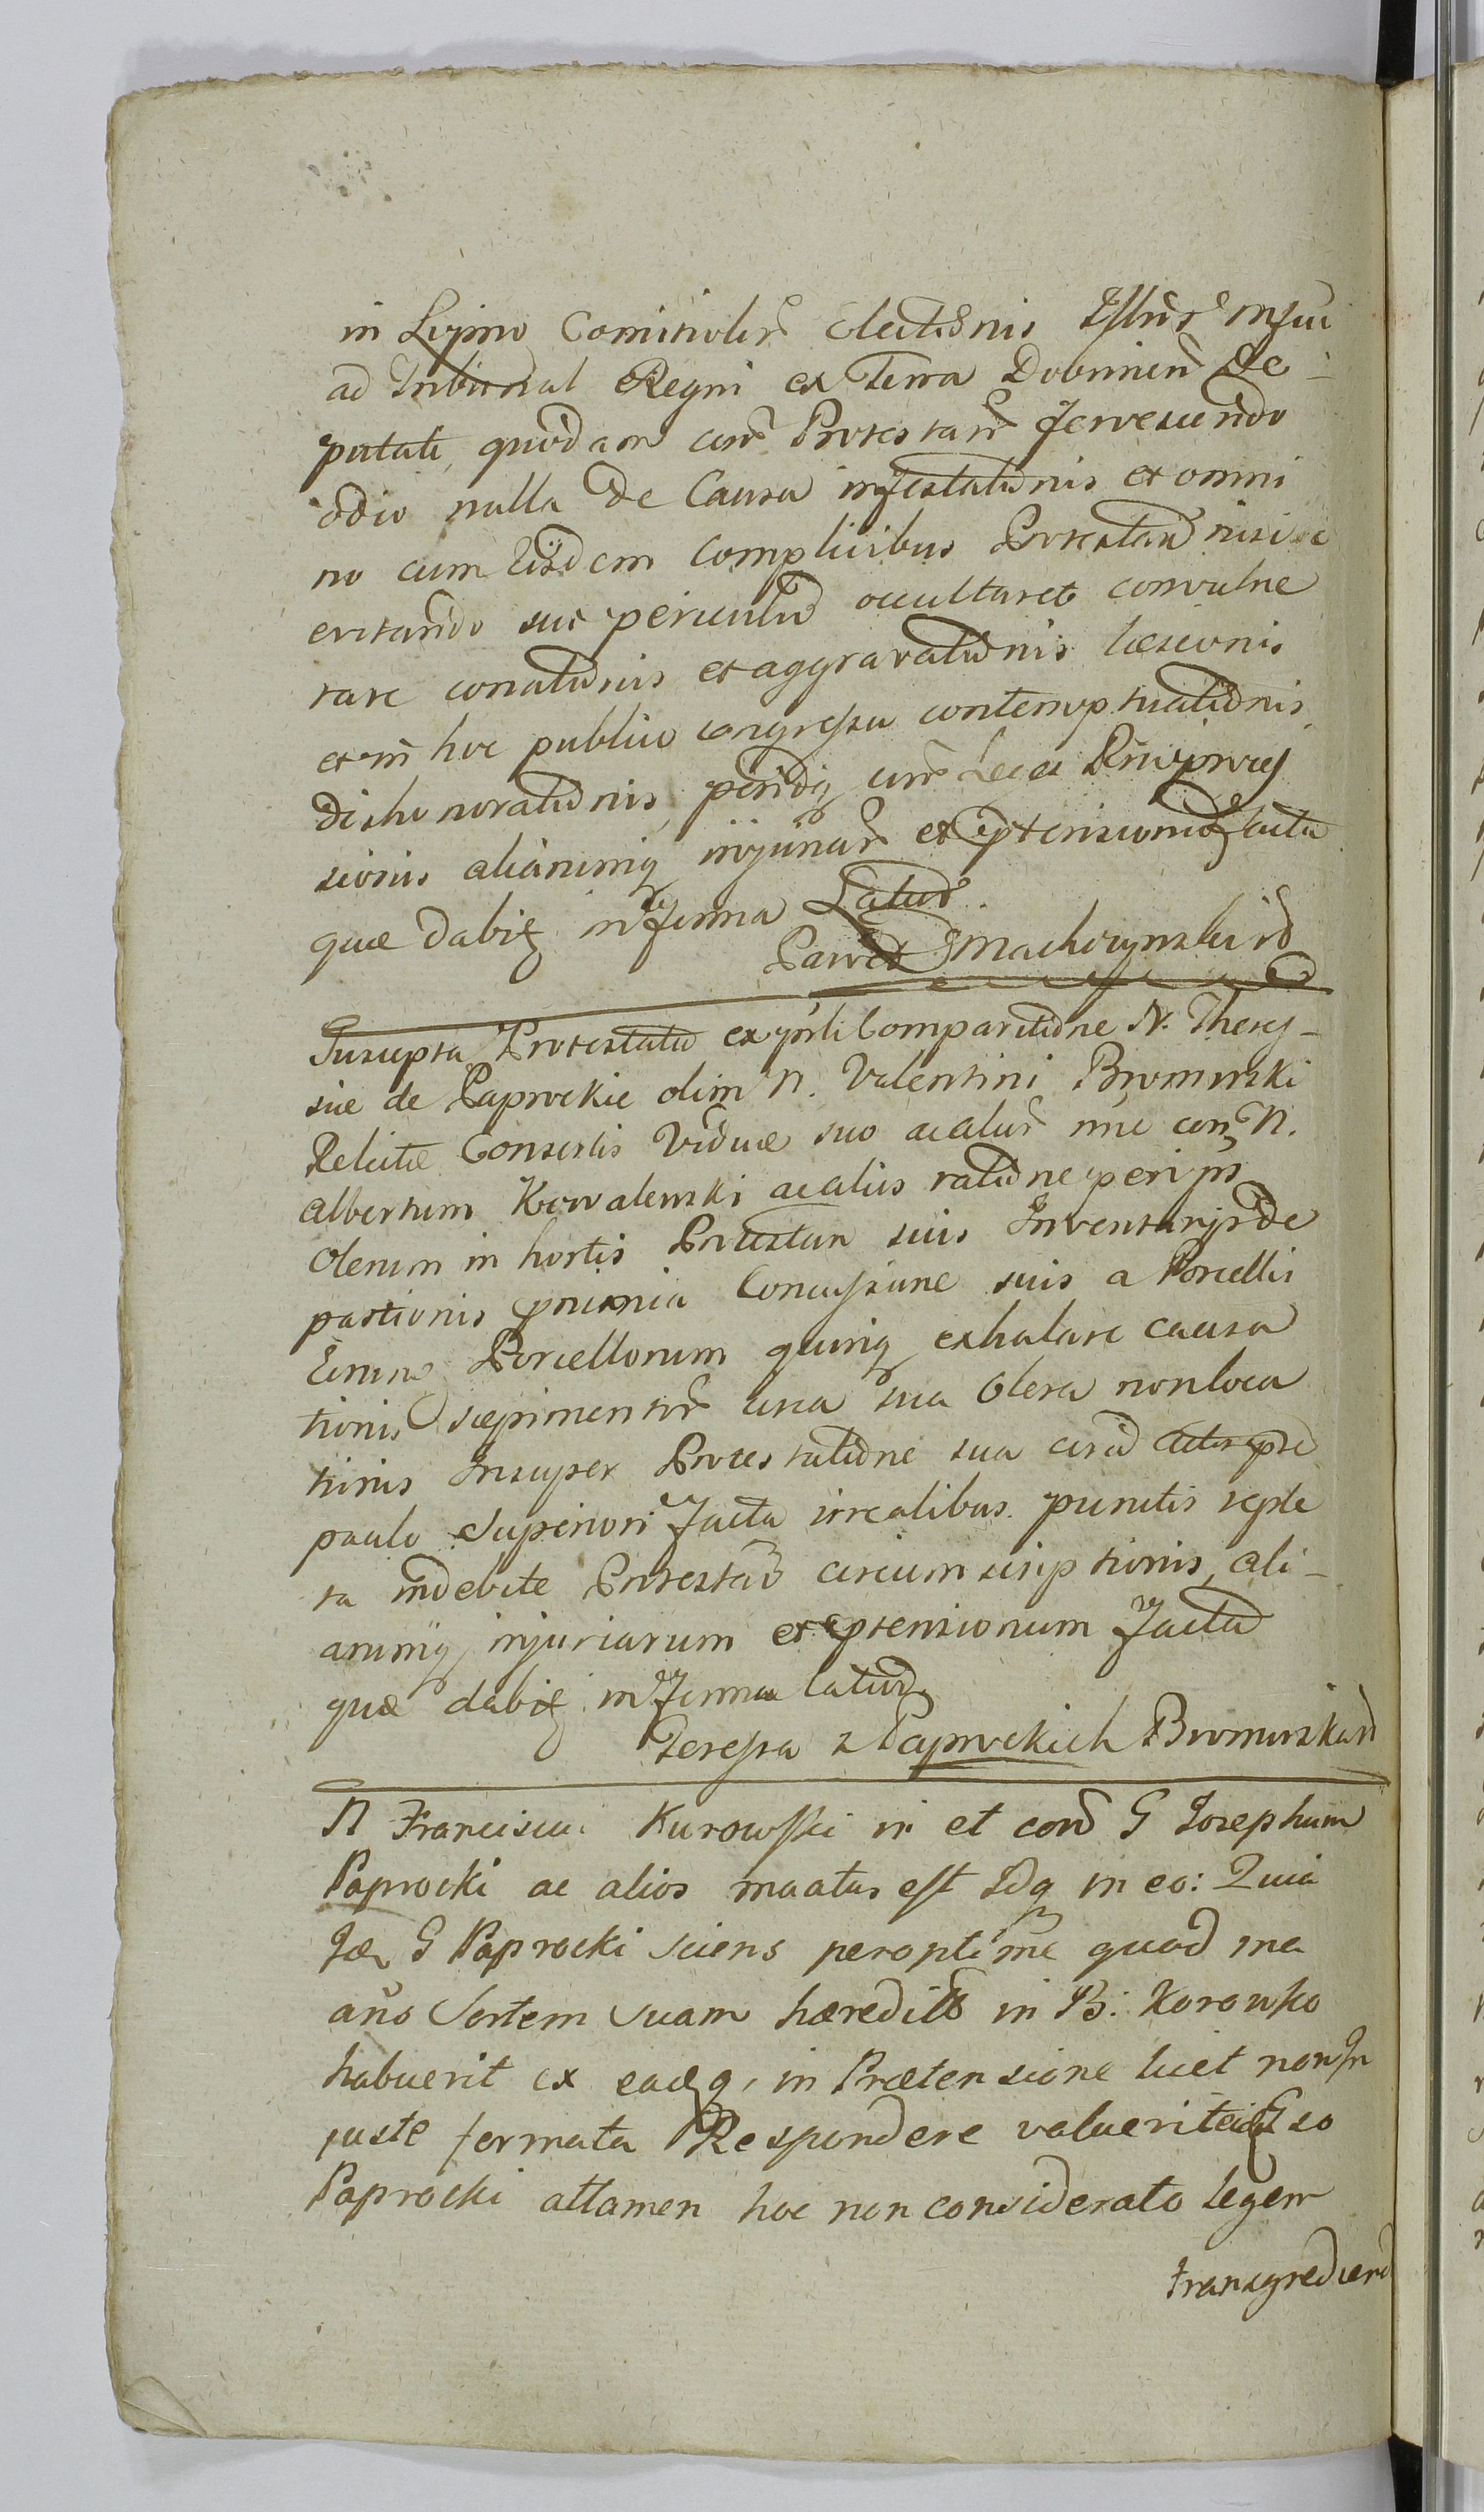 in Lipno Comitioliru Electionis Illuris
ad Tribunal Regni ex Terra Dobrinen De-
putati, quodam cum Protestare fervescendo
odio nulla de Causa infestationis et omni
no cum Eisdem Complicibus Protestan nisi se
evitando sue periculu occultaret convulne
rare conationis et aggravationis læsionis
et in hoc publico congressu contemptuationis
dishonorationis, perindeq cum
sionis aliarumq injuriar et ptensionu facta
quæ dabitz in forma Latiori
Paweł Machczynski

Suscepta Protestatio ex psli Comparitione N. There-
siæ de Paprockie olim N. Valentini Bromirski
Relictæ Consortis Viduæ suo ac alior nne con N.
Albertum Kowalewski ac alios ratione per ips
Olerum in hortis Protestan suis Inventarij de
pastionis Concussione suis a Porcellis
Eirum Porcellorum quinq exhalare causa
tionis sæpimentor circa sua Olera non loca
tionis Insuper Protestatione sua
paulo Superiori facta irrealibus punctis reple
ta indebite Protestan circumscriptionis, ali-
arumq injuriarum et ptensionum facta
quæ dabitz in forma latiori
Teressa z Paprockich Bromirska

N Franciscus Kurowski in et con G Josephum
Paprocki ac alios mgatus est Idq in eo: Quia
Idem G Paprocki sciens peroptime quod ma
ans Sortem Suam hæredit in B: Korowko
habuerit ex eadq, in Prætensione licet non In
juste formata Respondere valuerit eidem so
Paprocki attamen hoc non considerato legem
transgredien